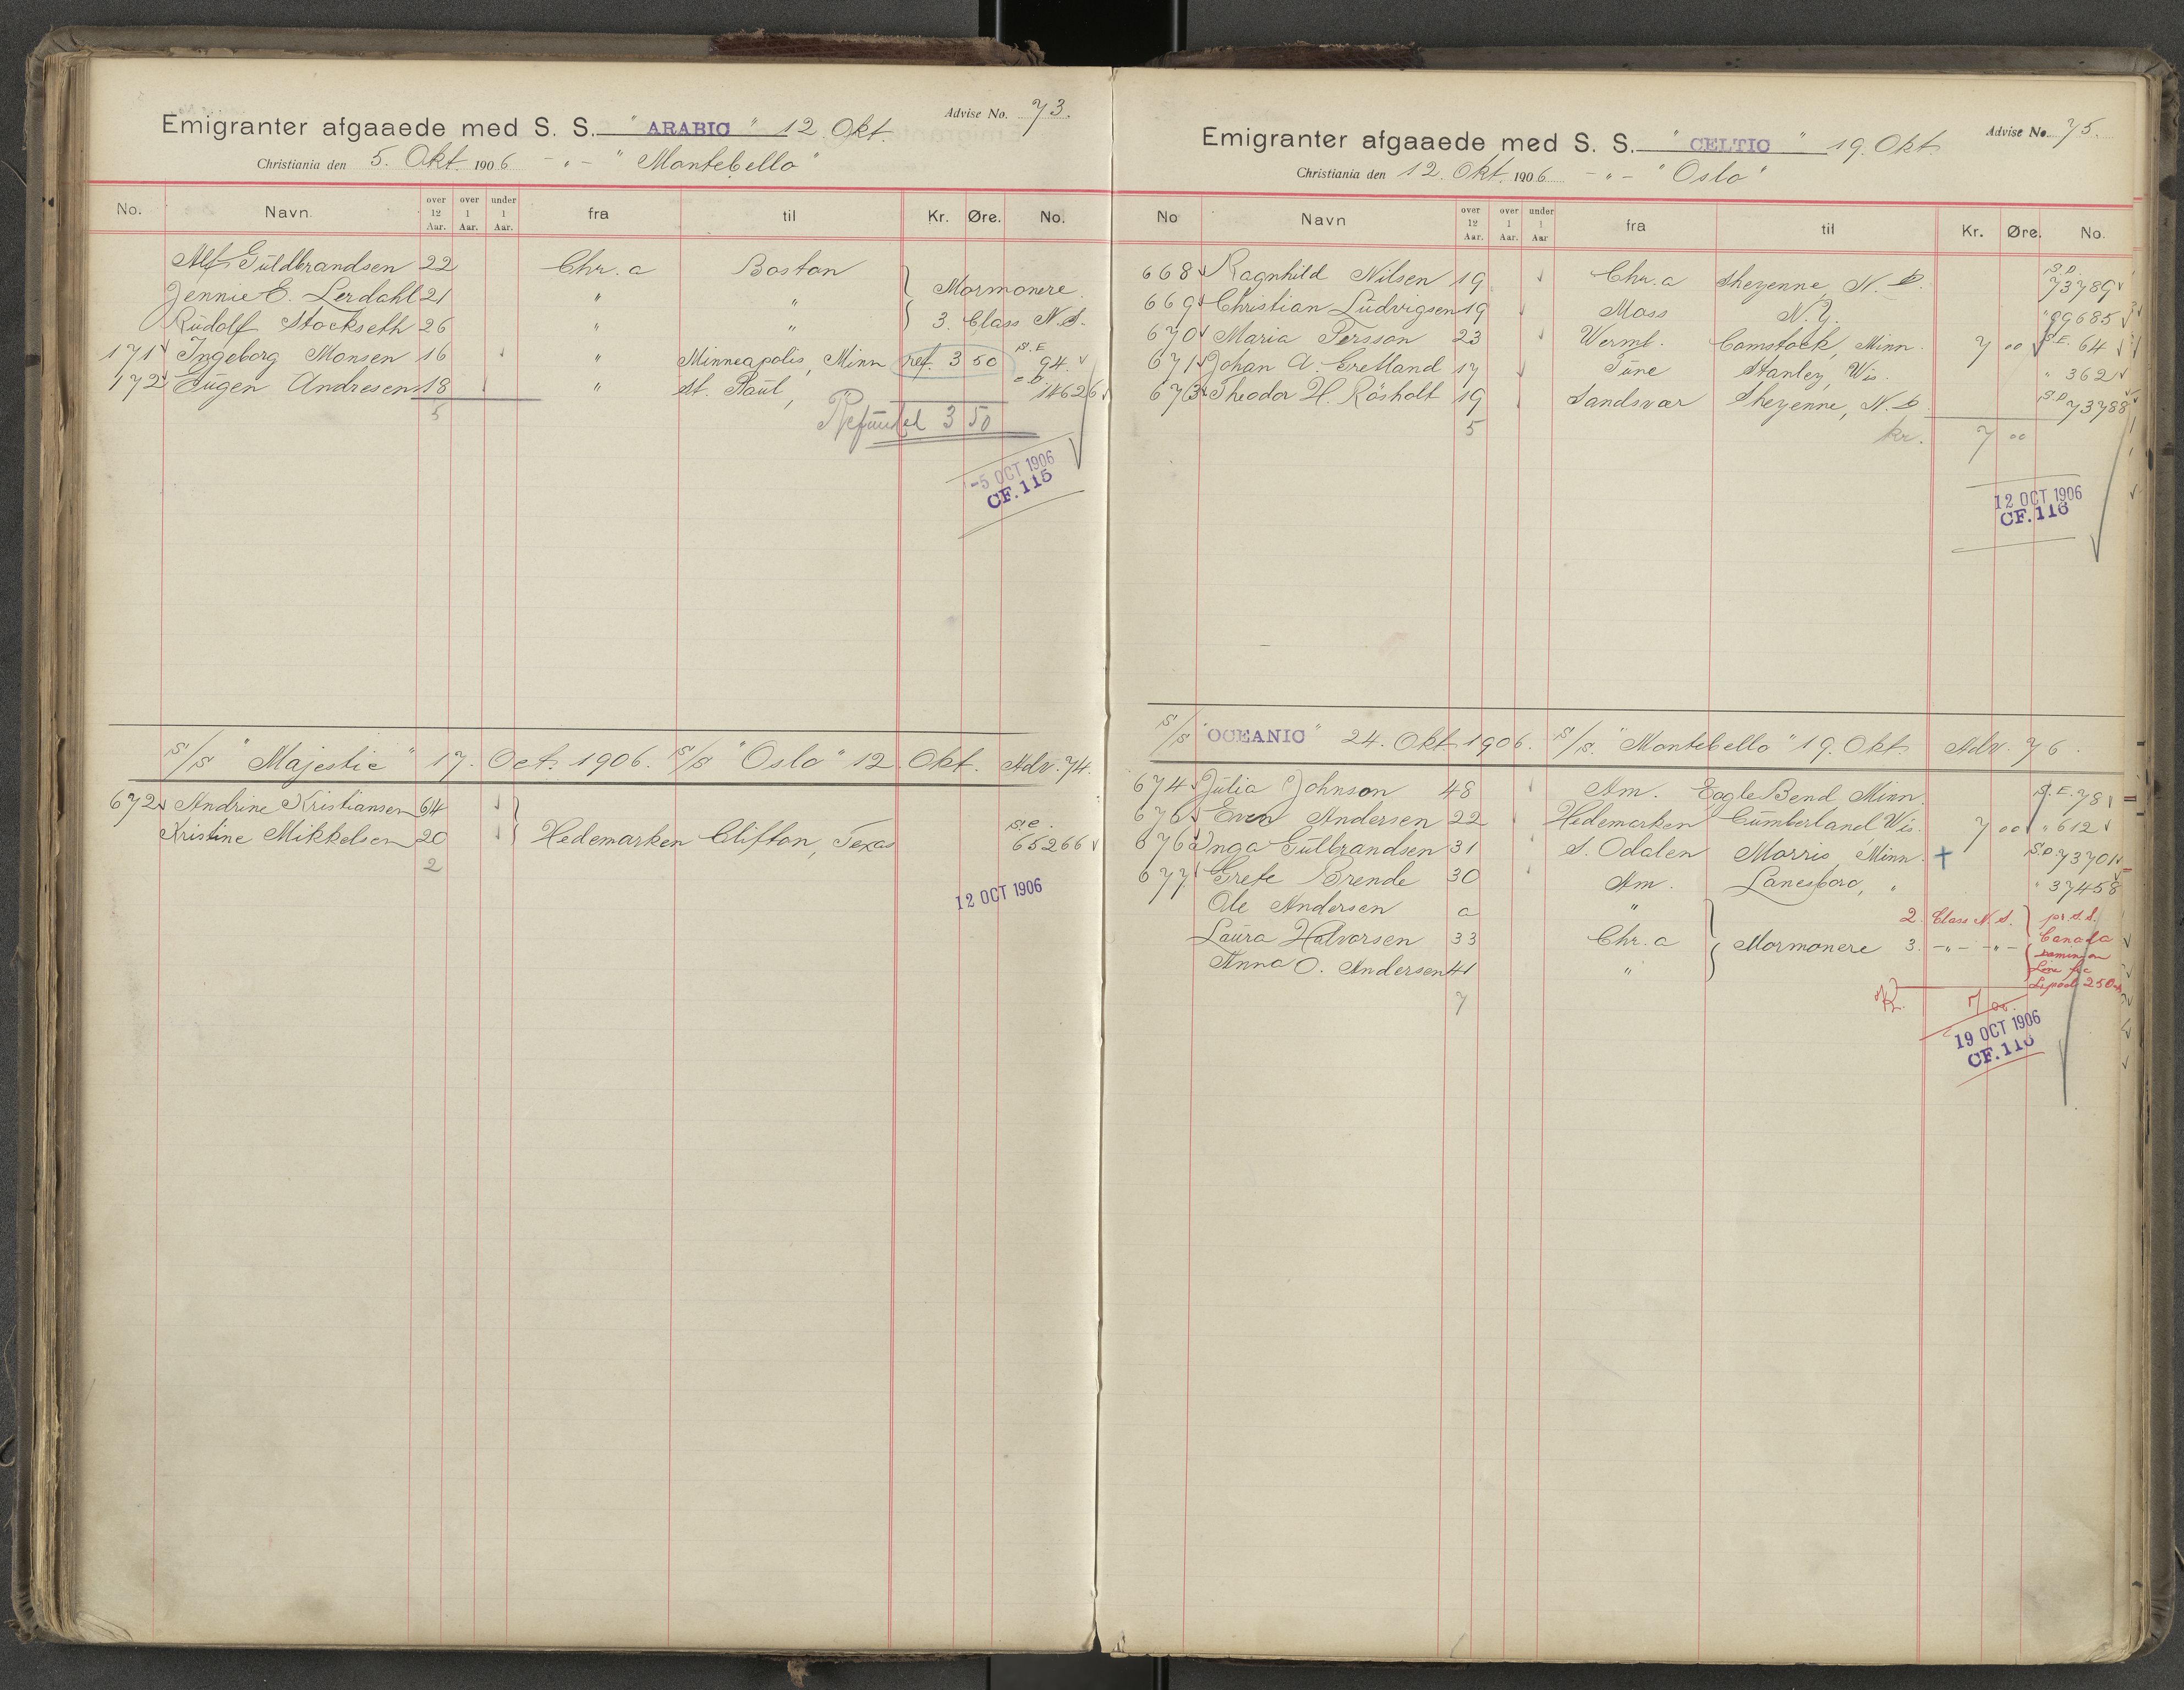 Advise No. 73.
Emigranter afgaaede med S. S. " ARABIC " 12 Okt.
Christiania den 5. Okt. 1906 -„- " Montebello "
No. Navn. over 12 Aar. over 1 Aar. under 1 Aar. fra til Kr. Øre. No.
Alf Guldbrandsen 22 Chr.a Boston
Jennie E. Lerdahl 21 " " } Mormonere.
Rudolf Stockseth 26 " " 3. Class N.S.
171 Ingeborg Monsen 16 " Minneapolis, Minn ref. 3 50 S.E 94.
172 Eugen Andresen 18 " St. Paul, " D. 14626
5 Refunded 3 50
-5 OCT 1906
CF. 115
S/S " Majestic " 17. Oct. 1906. S/S " Oslo " 12. Okt. Adv. 74.
672 Andrine Kristiansen 64
Kristine Mikkelsen 20 } Hedemarken Clifton, Texas S.C. 65266
2
12 OCT 1906
Advise No. 75.
Emigranter afgaaede med S. S. " CELTIC " 19. Okt.
Christiania den 12. Okt. 1906 -„- " Oslo "
No Navn over 12 Aar. over 1 Aar. under 1 Aar fra til Kr. Øre. No.
668 Ragnhild Nilsen 19 Chr.a Sheyenne, N. D. S.D. 73789
669 Christian Ludvigsen 19 Moss N.Y. " 99685
670 Maria Persson 23 Werml. Comstock, Minn. 7 00 S.E. 64
671 Johan A. Gretland 17 Tune Stanley, Wis. " 362
673 Theodor H. Rösholt 19 Sandsvær Sheyenne, N. D. S.D 73788
5 kr. 7 00
12 OCT 1906
CF. 116
S/S " OCEANIC " 24. Okt 1906. S/S. " Montebello " 19. Okt Adv. 76.
674 Julia Johnson 48 Am. Eagle Bend, Minn. S.E. 78
675 Even Andersen 22 Hedemarken Cumberland Wis. 7 00 " 612
676 Inga Gulbrandsen 31 S. Odalen Morris, Minn. S.D. 73701
677 Grete Brende 30 Am. Lanesboro, " " 37458
Ole Andersen a " 2. Class N. S. } pr. s.s.
Laura Halvorsen 33 Chr.a } Mormonere 3. -„- -„- Canada
Anna O. Andersen 41 " Dominion
Line fre
L.pool 25 Okt
7 K. 7 00.
19 OCT 1906
CF. 116